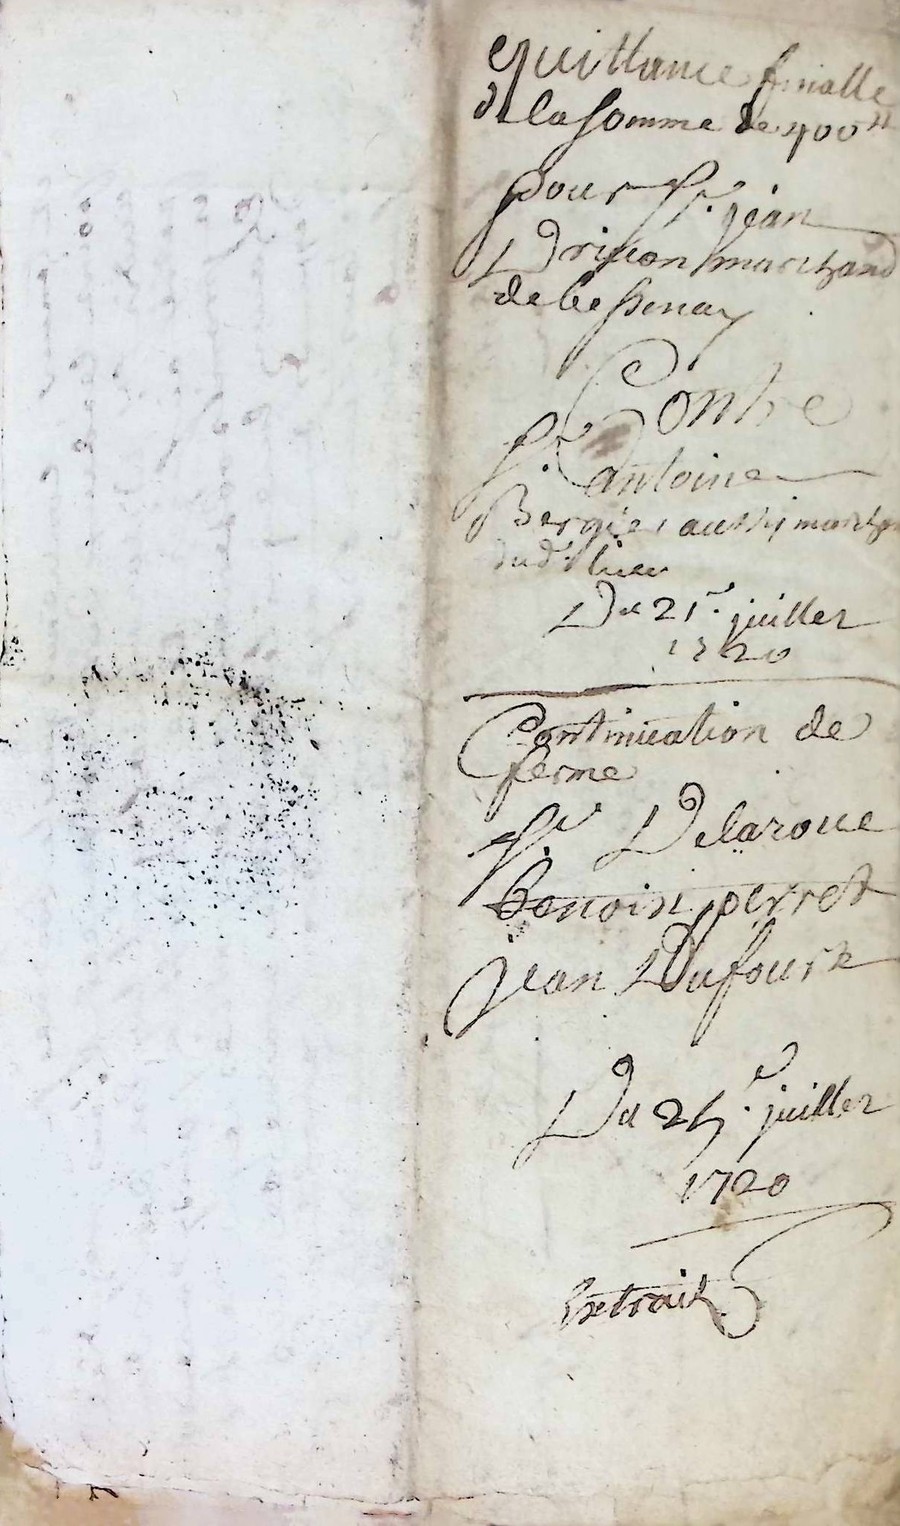 quittance finalle
de la somme de 400ᵗᵗ
pour Sʳ. jean
marchand
de bessenay
Contre
Sʳ. antoine
Bergier aussy marchand
dud. lieu
Du 21ᵉ. juillet
1720
Continuation de
ferme
Sʳ. Delaroue
benoist perret
jean Dufourt
Du 25ᵉ. juillet
1720
Extrait